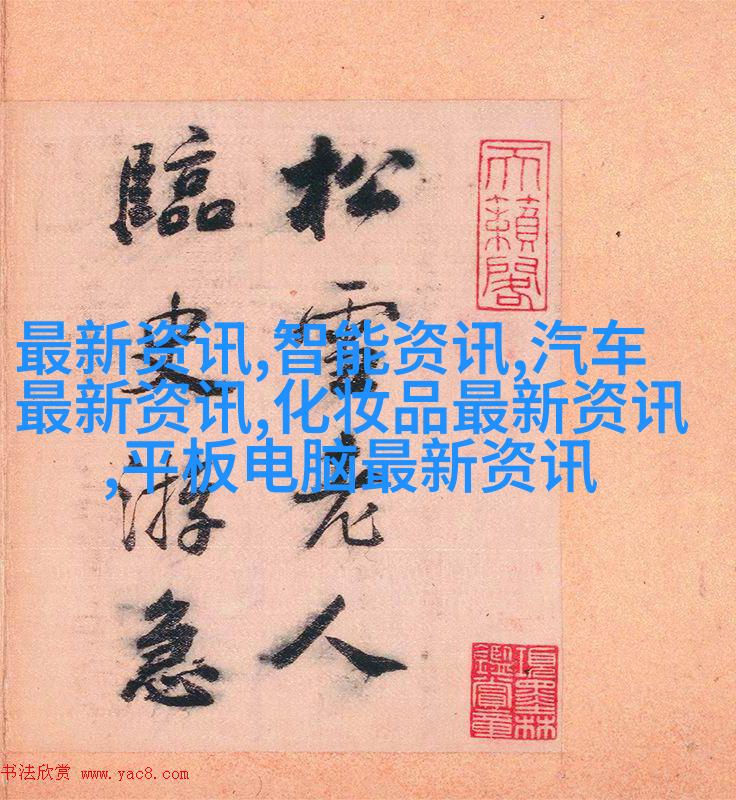 松雪老人
臨史游急
天籟閣
最新资讯,智能资讯,汽车
最新资讯,化妆品最新资讯
,平板电脑最新资讯
項墨林
鑑賞章
书法欣赏 www.yac8.com